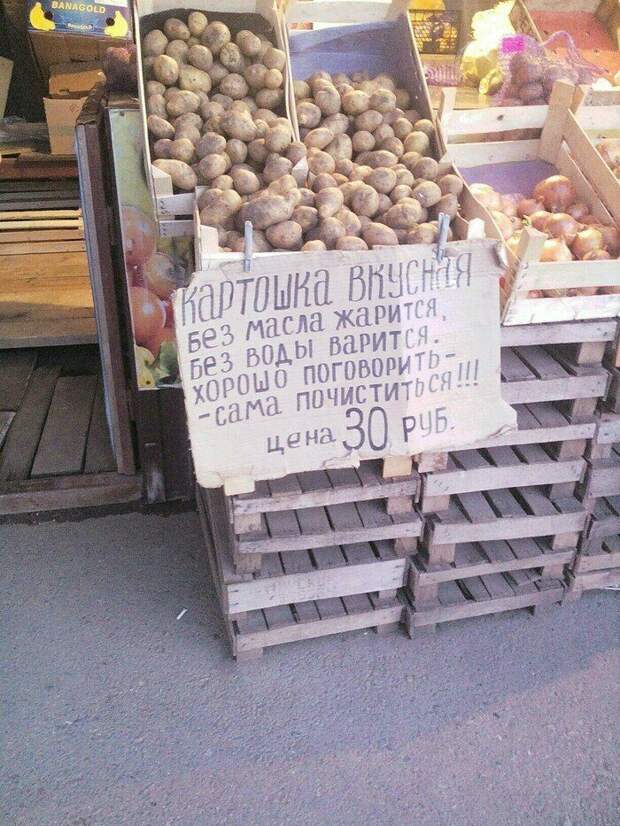 BANAGOLD
КАРТОШКА ВКУСНАЯ
БЕЗ МАСЛА ЖАРИТСЯ,
БЕЗ ВОДЫ ВАРИТСЯ.
ХОРОШО ПОГОВОРИТЬ-
-САМА ПОЧИСТИТЬСЯ!!!
ЦЕНА 30 РУБ.